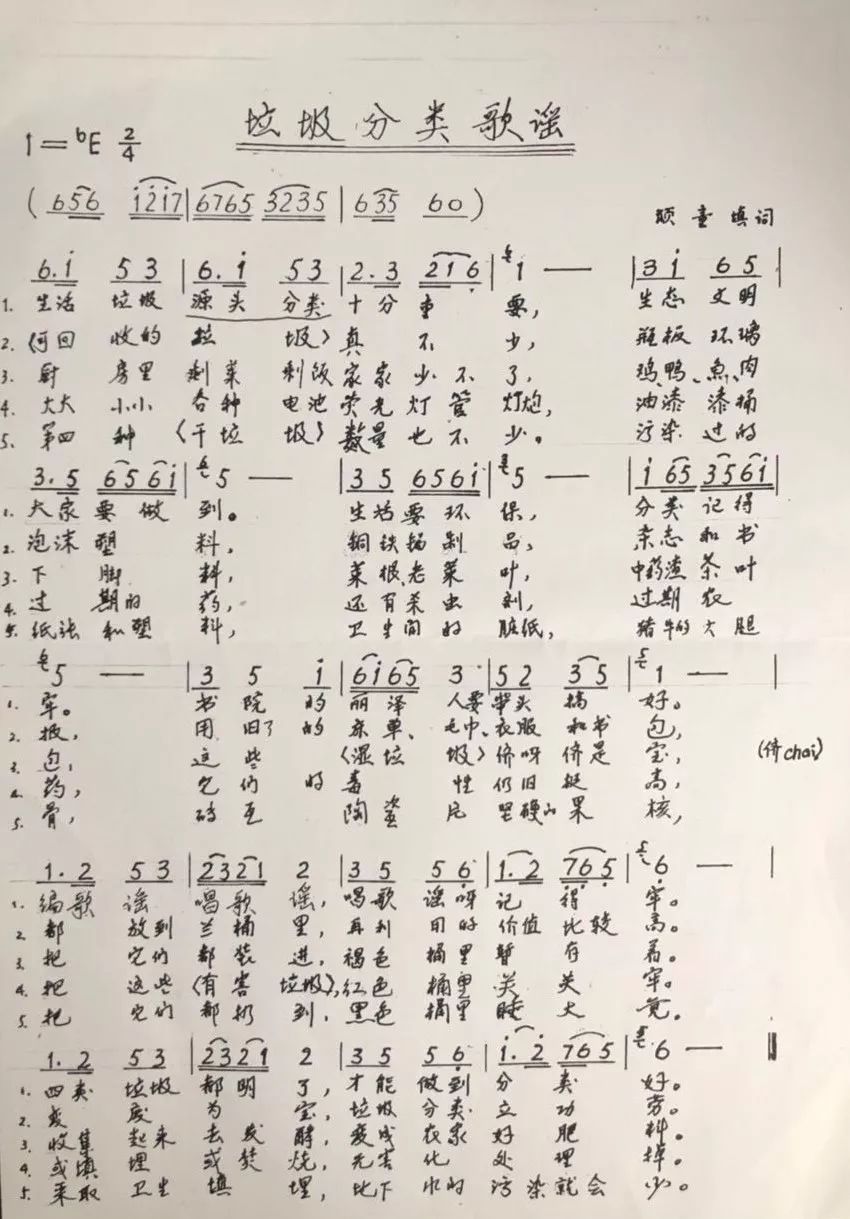 垃圾分类歌谣
1=ᵇE 2/4
(656 i2i7|6765 3235|635 60)
顾童填词
6.i 53|6.i 53|2.3 216|1 —|3i 65|
1. 生活垃圾源头分类十分重要, 生态文明
2. (可回收的垃圾)真不少, 瓶板环璃
3. 厨房里剩菜剩饭家家少不了, 鸡、鸭、鱼、肉
4. 大大小小各种电池荧光灯管灯炮, 油漆漆桶
5. 第四种(干垃圾)数量也不少。 污染过的
3.5 656i|5 —|35 656i|5 —|i65 356i|
1. 大家要做到。 生活要环保, 分类记得
2. 泡沫塑料, 铜铁锡制品, 杂志和书
3. 下脚料, 菜根老菜叶, 中药渣茶叶
4. 过期的药, 还有杀虫剂, 过期农
5. 纸张和塑料, 卫生间的脏纸, 猪牛的大腿
5 —|35 i|6i65 3|52 35|1 —|
1. 牢。 书院的丽泽人要带头搞好。
2. 报, 用旧了的床单、毛巾、衣服和书包,
3. 包, 这些(湿垃圾)侪呀侪是宝, (侪chai)
4. 药, 它们的毒性仍旧挺高,
5. 骨, 砖瓦陶瓷片坚硬的果核,
1.2 53|2321 2|35 56|1.2 765|6 —|
1. 编歌谣唱歌谣, 唱歌谣呀记得牢。
2. 都放到兰桶里, 再利用的价值比较高。
3. 把它们都装进, 褐色桶里暂存着。
4. 把这些(有害垃圾), 红色桶里关关牢。
5. 把它们都扔到, 黑色桶里睡大觉。
1.2 53|2321 2|35 56|1.2 765|6 —‖
1. 四类垃圾都明了, 才能做到分类好。
2. 变废为宝, 垃圾分类立功劳。
3. 收集起来去发酵, 变成农家好肥料。
4. 或填埋或焚烧, 无害化处理掉。
5. 采取卫生填埋, 地下水的污染就会少。